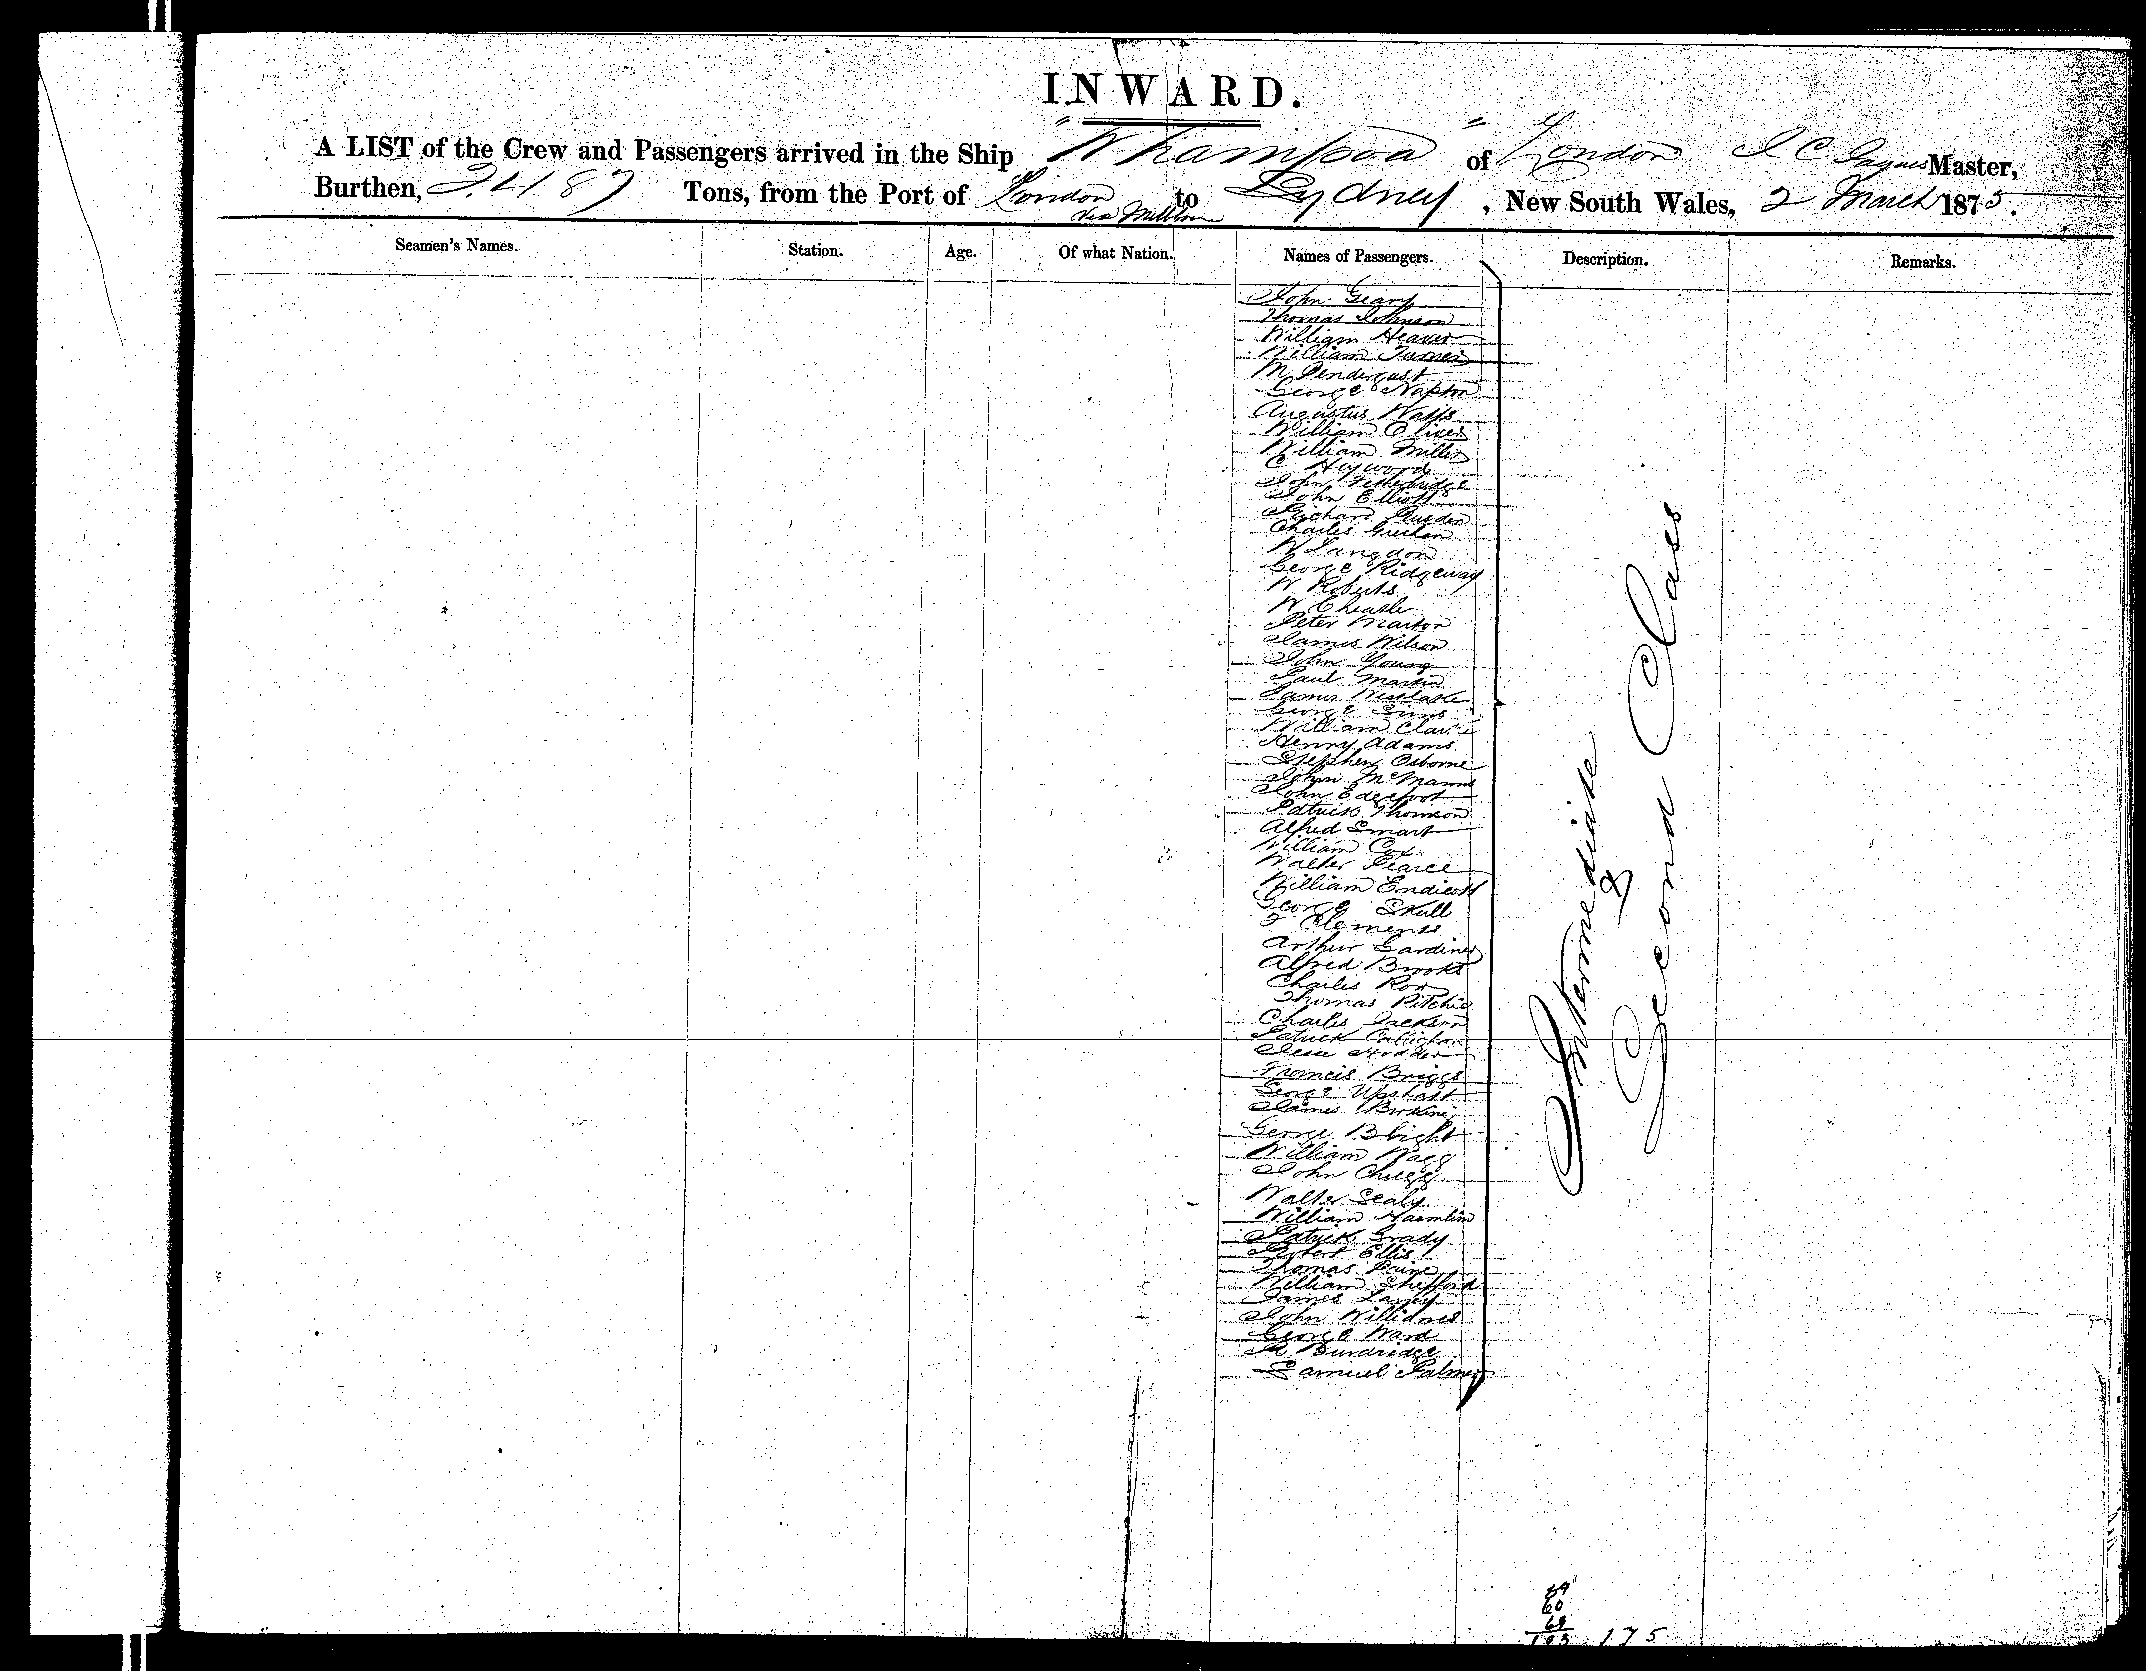 INWARD.
A LIST of the Crew and Passengers arrived in the Ship "Whampoa" of London J C Master,
Burthen, Tons, from the Port of London to Sydney, New South Wales, 2 March 1875.
via
Seamen's Names. Station. Age. Of what Nation. Names of Passengers. Description. Remarks.
John Geary
Thomas Johnson
William Heaver
William Turner
M Pendergast
George Napton
Augustus Watts
William Oliver
William Miller
C Heywood
John
John Elliott
Richard
Charles
W Langdon
George Ridgeway
W Roberts
W Cheatle
Peter Martor
James Wilson
John Young
Paul Martin
James Westlake
George Sims
William Clark
Henry Adams
Stephen Osborne
John McManus
John Edgefoot
Patrick Thomson
Alfred Smart
William Cox
Walter Pearce
William Endicott
George Skull
Clements
Arthur Gardiner
Alfred Brooks
Charles Row
Thomas Ritchie
Charles Jackson
Patrick
Hodder
Francis Briggs
George Upshall
James
George Blight
William Wagg
John Chugg
Walter Sealy
William Hamlin
Patrick Grady
Robert Ellis
Thomas Paine
William Shefford
James Laney
John
George Ward
Burdridge
Samuel Palmer
Intermediate
&
Second Class
60
175